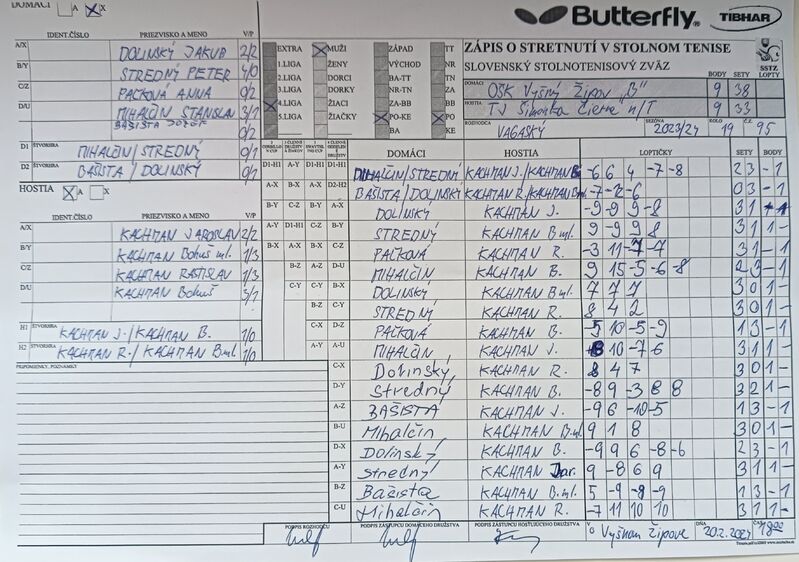 DOMÁCI A X
Butterfly TIBHAR
IDENT.ČÍSLO PRIEZVISKO A MENO V/P
A/X DOLINSKÝ JAKUB 2/2
B/Y STREDNÝ PETER 4/0
C/Z PAČKOVÁ ANNA 0/2
D/U MIHALČIN STANISLAV 3/1
BAŠISTA JOZEF 0/2
D1 ŠTVORHRA MIHALČIN/STREDNÝ 0/1
D2 ŠTVORHRA BAŠISTA/DOLINSKÝ 0/1
HOSTIA A X
IDENT.ČÍSLO PRIEZVISKO A MENO V/P
A/X KACHMAN JAROSLAV 2/2
B/Y KACHMAN Bohuš ml. 1/3
C/Z KACHMAN RASTISLAV 1/3
D/U KACHMAN Bohuš 3/1
H1 ŠTVORHRA KACHMAN J./KACHMAN B. 1/0
H2 ŠTVORHRA KACHMAN R./KACHMAN B.ml. 1/0
PRIPOMIENKY, POZNÁMKY
EXTRA MUŽI ZÁPAD TT
1.LIGA ŽENY VÝCHOD NR
2.LIGA DORCI BA-TT TN
3.LIGA DORKY NR-TN ZA
4.LIGA ŽIACI ZA-BB BB
5.LIGA ŽIAČKY PO-KE PO
BA KE
ZÁPIS O STRETNUTÍ V STOLNOM TENISE
SLOVENSKÝ STOLNOTENISOVÝ ZVÄZ
SSTZ
BODY SETY LOPTY
DOMÁCI OŠK Vyšný Žipov "B" 9 38
HOSTIA TJ Šimonka Čierne n/T 9 33
ROZHODCA VAGASKÝ SEZÓNA 2023/24 KOLO 19 Č.Z. 95
DOMÁCI HOSTIA LOPTIČKY SETY BODY
D1-H1 MIHALČIN/STREDNÝ KACHMAN J./KACHMAN B. -6 6 4 -7 -8 2 3 - 1
D2-H2 BAŠISTA/DOLINSKÝ KACHMAN R./KACHMAN B.ml. -7 -12 -6 0 3 - 1
A-X DOLINSKÝ KACHMAN J. -9 -9 9 -8
B-Y STREDNÝ KACHMAN B.ml. 9 -9 9 8 3 1 1 -
C-Z PAČKOVÁ KACHMAN R. -3 11 -7 -7
D-U MIHALČIN KACHMAN B. 9 15 -5 -6 -8 2 3 - 1
B-X DOLINSKÝ KACHMAN B.ml. 7 7 7 3 0 1 -
C-Y STREDNÝ KACHMAN R. 8 4 2 3 0 1 -
D-Z PAČKOVÁ KACHMAN B. -5 10 -5 -9 1 3 - 1
A-U MIHALČIN KACHMAN J. 10 -7 6 3 1 1 -
C-X Dolinský KACHMAN R. 8 4 7 3 0 1 -
D-Y Stredný KACHMAN B. -8 9 -3 8 8 3 2 1 -
A-Z BAŠISTA KACHMAN J. -9 6 -10 -5 1 3 - 1
B-U Mihalčin KACHMAN B.ml. 9 1 8 3 0 1 -
D-X Dolinský KACHMAN B. -9 9 6 -8 -6 2 3 - 1
A-Y Stredný KACHMAN Jar. 9 -8 6 9 3 1 1 -
B-Z Bašista KACHMAN B.ml. 5 -9 -8 -9 1 3 - 1
C-U Mihalčin KACHMAN R. -7 11 10 10 3 1 1 -
PODPIS ROZHODCU PODPIS ZÁSTUPCU DOMÁCEHO DRUŽSTVA PODPIS ZÁSTUPCU HOSŤUJÚCEHO DRUŽSTVA V Vyšnom Žipove DŇA 20.2.2024 ČAS 18:00